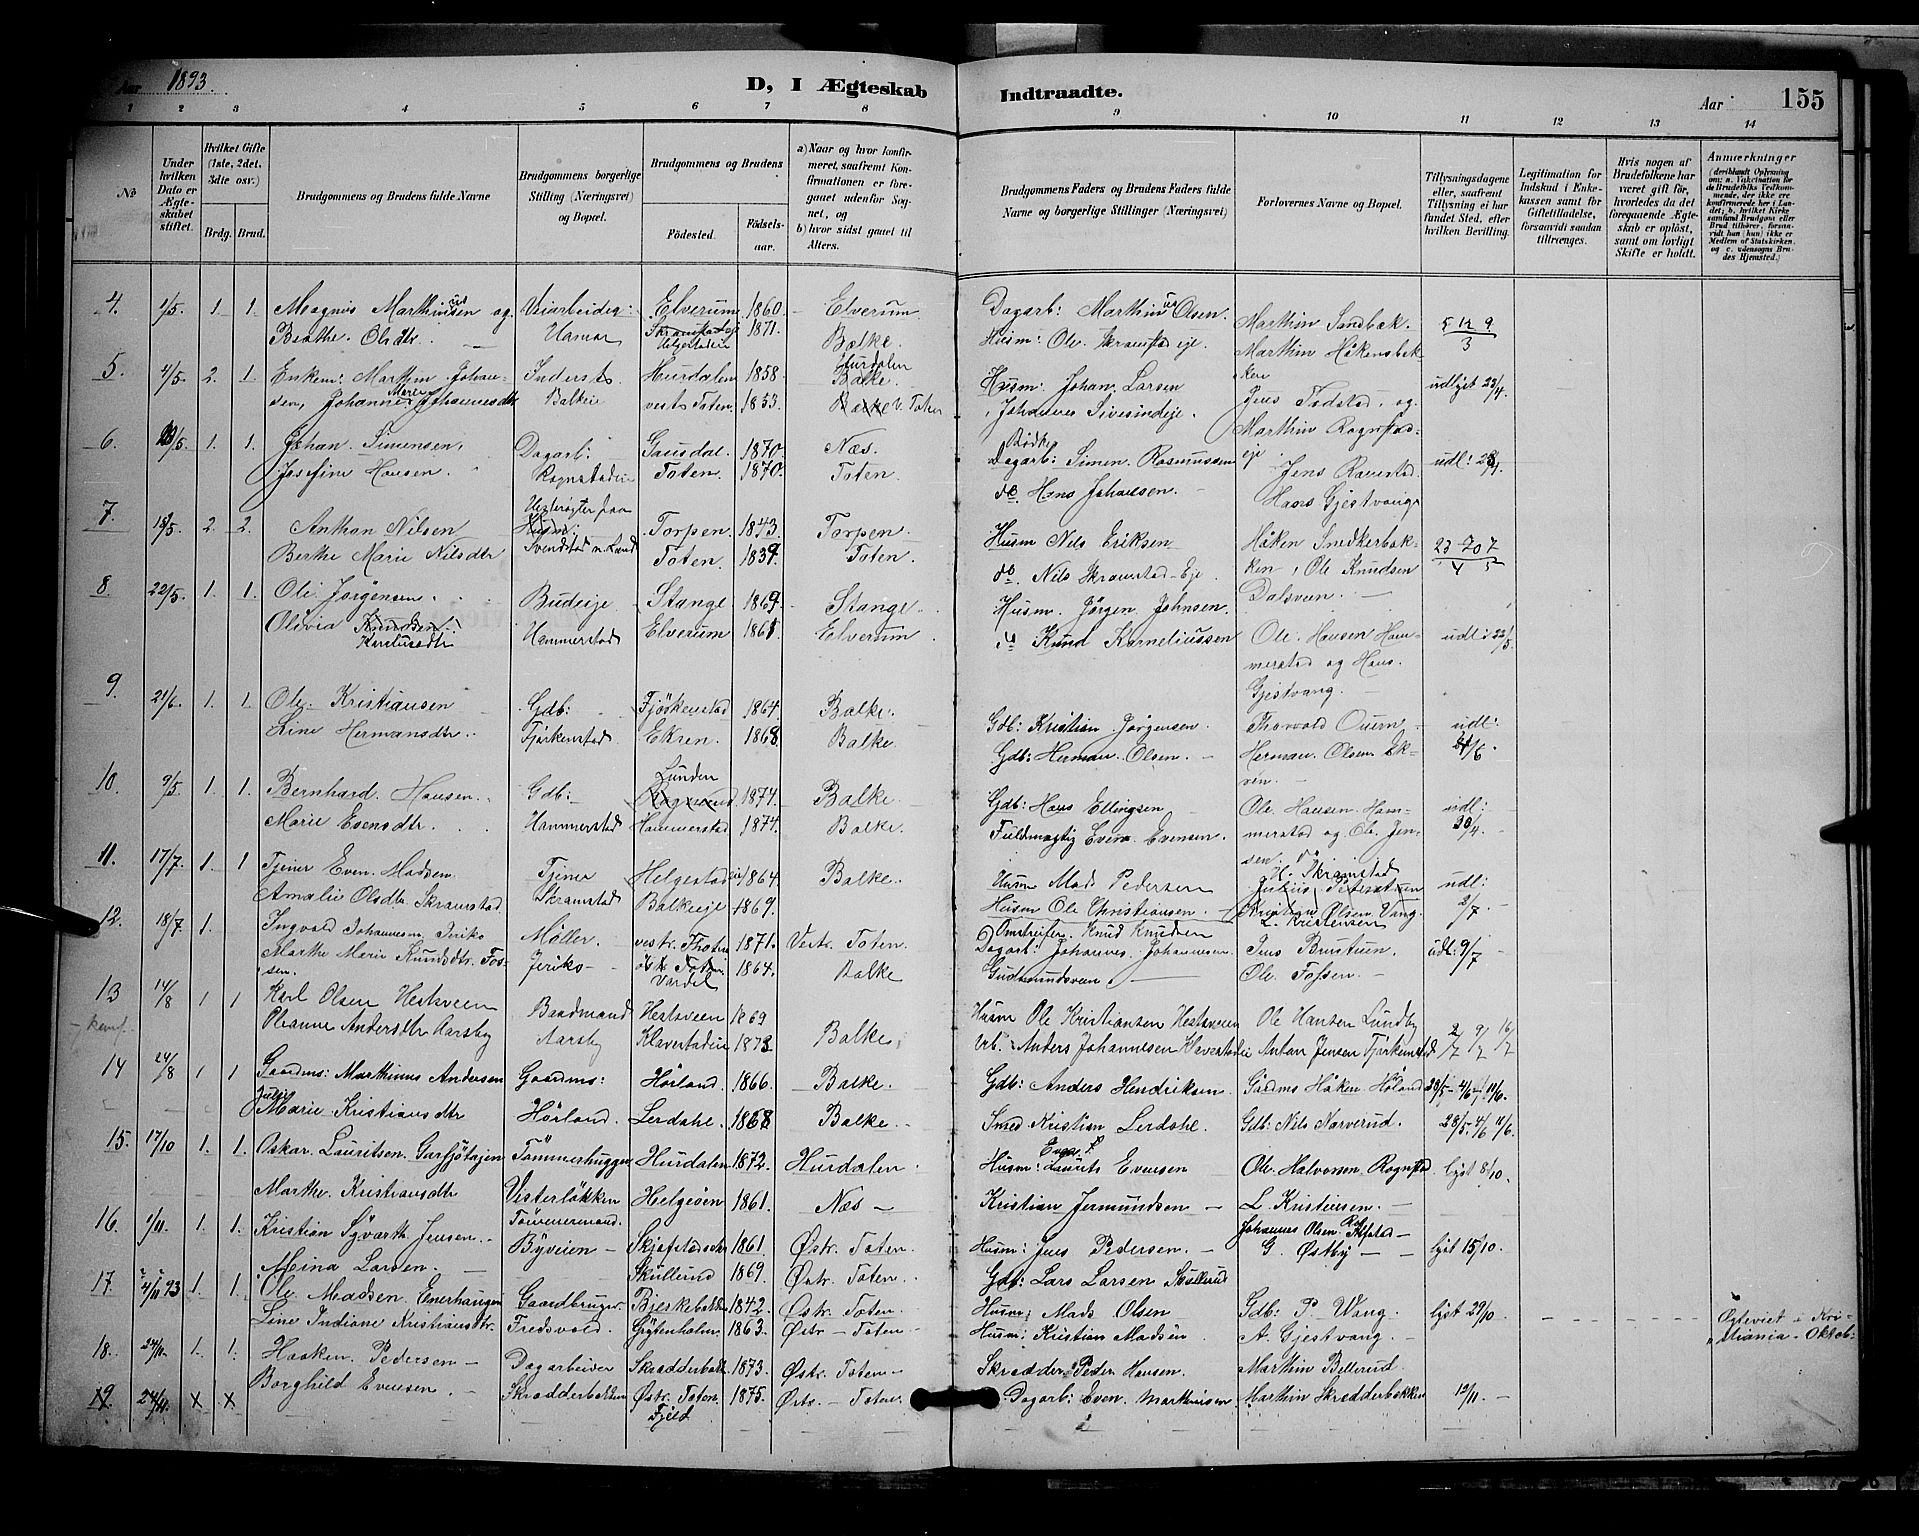 Aar 1893.
D, I Ægteskab Indtraadte.
Aar 155
1 2 3 4 5 6 7 8 9 10 11 12 13 14
No
Under hvilken Dato er Ægteskabet stiftet.
Hvilket Gifte (1ste, 2det, 3die osv.)
Brdg. Brud.
Brudgommens og Brudens fulde Navne
Brudgommens borgerlige Stilling (Næringsvei) og Bopæl.
Brudgommens og Brudens
Födested. Födselsaar.
a) Naar og hvor konfirmeret, saafremt Konfirmationen er foregaaet udenfor Sognet, og
b) hvor sidst gaaet til Alters.
Brudgommens Faders og Brudens Faders fulde Navne og borgerlige Stillinger (Næringsvei)
Forlovernes Navne og Bopæl.
Tillysningsdagene eller, saafremt Tillysning ei har fundet Sted, efter hvilken Bevilling.
Legitimation for Indskud i Enkekassen samt for Giftetilladelse, forsaavidt saadan tiltrænges.
Hvis nogen af Brudefolkene har været gift för, hvorledes da det foregaaende Ægteskab er oplöst, samt om lovligt Skifte er holdt.
Anmærkninger (deriblandt Oplysning om: a. Vakcination for de Brudefolks Vedkommende, der ikke ere konfirmerede her i Landet; b. hvilket Kirkesamfund Brudgom eller Brud tilhörer, forsaavidt han (hun) ikke er Medlem af Statskirken, og c. udensogns Brudes Hjemsted.)
4. 1/5 1. 1. Magnus Marthinusen og Veiarbeider: Elverum 1860 Elverum Dagarb: Marthinus Olsen. Marthin Sandbak. 5 14 9
Beathe Olsdtr. Hamar Helgestadeie 1871. Balke. Husm: Ole Skramstadeje. Marthin Håkensbakken 3
5. 4/5 2. 1. Enkem: Marthin Johansen, Inderst Hurdalen 1858 Hurdalen Husm: Johan Larsen udlyst 23/4.
Johanne Marie Johannesdtr Balkeie vest. Toten 1853. V. Toten Johannes Sivesindeje. Jens Fodstad, og
6. /5 1. 1. Johan Simensen, Dagarb: Gausdal 1870. Næs. Dagarb: Simen Rasmussen Marthin Rognstadeje udl:
Josefine Hansen. Rognstadeie Toten 1870. Toten. do. Hans Johansen. Jens Hans Gjestvang
7. 18/5 2. 2. Anthon Nilsen Torpen 1843 Torpen Husm Nils Eriksen Håken Snedkerbakken, 23
Berthe Marie Nilsdtr Svendstad n. Land Toten 1839. Toten. do. Nils Skramstad-Eje. Ole Knudsen Dalsveen.
8. 22/5 1. 1. Ole Jørgensen Budeije Stange 1869 Stange. Husm. Jørgen Johnsen.
Olovia Hammerstad Elverum 1861 Elverum Knud Korneliussen Ole Hansen Hammerstad og Hans Gjestvang. udl: 22/5.
9 21/6. 1. 1. Ole Kristiansen Gdb: Fjöskenstad 1864. Balke. Gdb: Kristian Jørgensen. Thorvald udl:
Line Hermansdtr Ekren. 1868 Balke. Gdb: Herman Olsen. Herman Olsen Ekren. /6.
10. 9/5 1. 1. Bernhard Hansen. Gdb: Lunden 1874. Balke. Gdb: Hans Ellingsen Ole Hansen Hammerstad udl:
Marie Evensdtr. Hammerstad Hammerstad 1874. Balke. Fuldmægtig Even Evensen og Ole Jensen. 30/4.
11. 17/7. 1. 1 Tjener Even Madsen Tjener Helgestadeie 1864. Balke. Husm Mads Pedersen Skramstad udl:
Amalie Olsdtr Skramstad Skramstad Balkeeje 1869. Husm Ole Christiansen. Olsen Vang. 2/7.
12. 18/7 1. Ingvald Johannesen Jeriko Möller. vestr. Thoten 1871. Vestr. Toten. Omstreifer Knud Knudsen L. Kristensen
Marthe Marie Knudsdtr Fossen. Jeriko Vardal 1864. Balke Dagarb: Johannes Johannesen. Gudmundsveen Jens Brustuen Ole Fossen. udl: 9/7
13 14/8 1 1 Karl Olsen Hestsveen Baadmand Hestsveen 1869 Husm Ole Kristiansen Hestsveen Ole Hansen Lundby 2/7 9/7 16/7
Oleanne Andersdtr Aarsby Aarsby Klavestadeie 1873 Balke. Arb. Anders Johannesen Klavestadeie Anton Jensen
14 24/8 1 1 Gaardms: Marthinus Andersen Gaardms: Hörland 1866 Balke. Gdb: Anders Hendriksen Gårdms Håken Höland 28/5 4/6 11/6.
Julie Marie Kristiansdtr Hörland. Lerdahl. 1868 Balke. Smed Kristian Lerdahl. Gdb: Nils Narverud. 28/5 4/6 11/6
15. 17/10 1. 1. Oskar Lauritsen Garsjötajen Tömmerhugger Hurdalen 1872. Hurdalen. Husm: Laurits Evensen Ole Halvorsen Rognstad lyst 8/10.
Marthe Kristiansdtr Vesterløkken Helgeöen 1861. Næs Kristian Jermundsen L. Kristensen.
16. 1/11. 1. 1. Kristian Syvarth Jensen. Byveien 1861 Østr. Toten. Husm: Jens Pedersen. Johannes Olsen lyst 15/10.
Mina Larsen. Skullerud 1869. Østr. Toten. Gdb: Lars Larsen Skullerud G. Østby
17. 4/11 93 1. 1. Ole Madsen Enerhaugen Gaardbruger Bjerkebakken 1842. Østr. Toten. Husm: Mads Olsen Gdb: P. Vang. lyst 29/10 Ægteviet i Kristiania Oktob:
Line Indiane Kristiansdtr. Fredsvold. 1863. Østr Toten. Husm: Kristian Madsen A. Gjestvang.
18. 24/11. 1. 1. Haaken Pedersen Dagarbeider Skrædderbakken 1873. Østr. Toten Skrædder Peder Hansen Marthin Billerud.
19. 24/11. x x Borghild Evensen. Skrædderbakken Østr. Toten, Fjeld 1875. Østr. Toten. Dagarb: Even Marthinsen Marthin Skredderbakken 12/11.